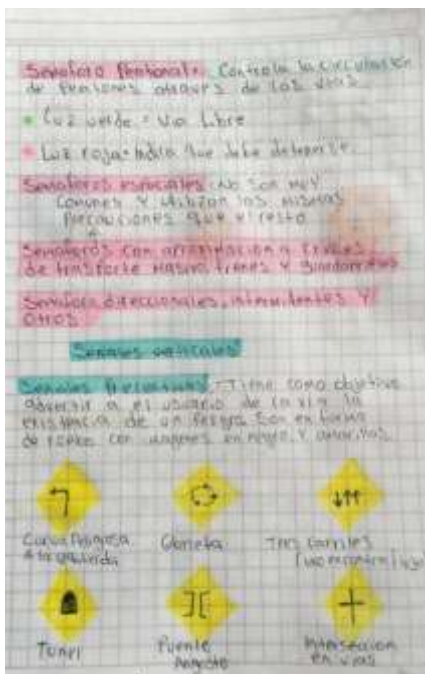 Semáforo Peatonal: Controla la circulación
de peatones através de las vías
Luz verde = Vía Libre
Luz roja = Indica que debe detenerse.
Semáforos especiales: No son muy
comunes y utilizan las mismas
precauciones que el resto
Semáforos con aproximación a cruces
de trasporte masivo trenes y
Semáforo direccionales, intermitentes y
otros
Señales verticales
Señales Preventivas: Tiene como objetivo
advertir a el usuario de la vía la
existencia de un Son en forma
de rombo con imagenes en negro y amarillas
Curva Peligrosa
a la izquierda
Glorieta
Tres carriles
(uno encontra
Tunel
Puente
Angosto
Interseccion
en vías